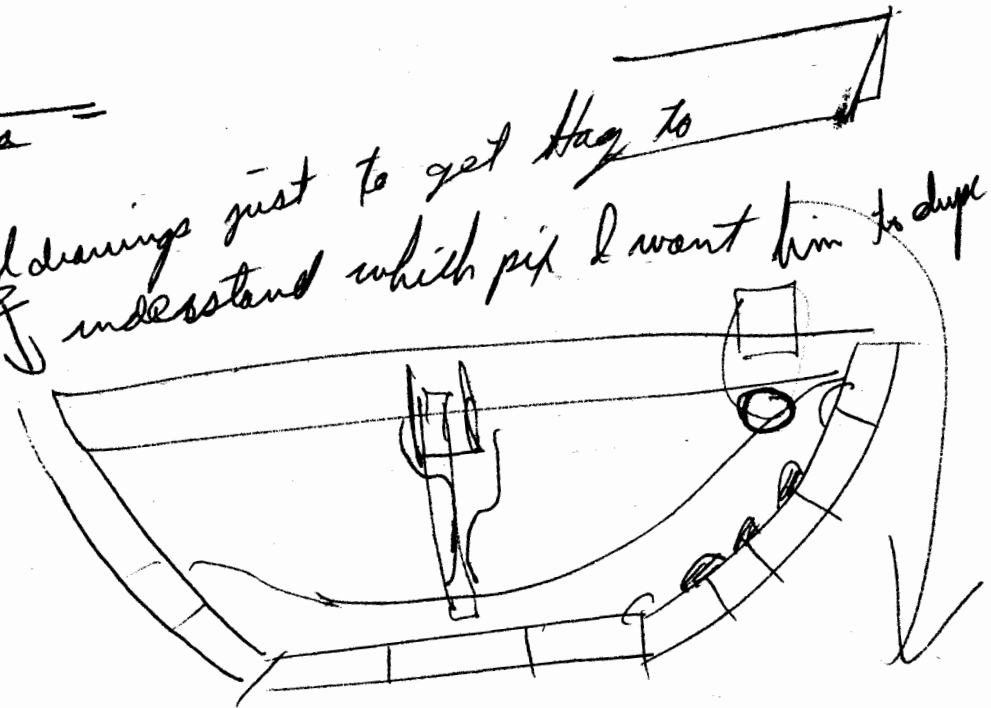 drawings just to get Hag to
understand which pix I want him to dupe